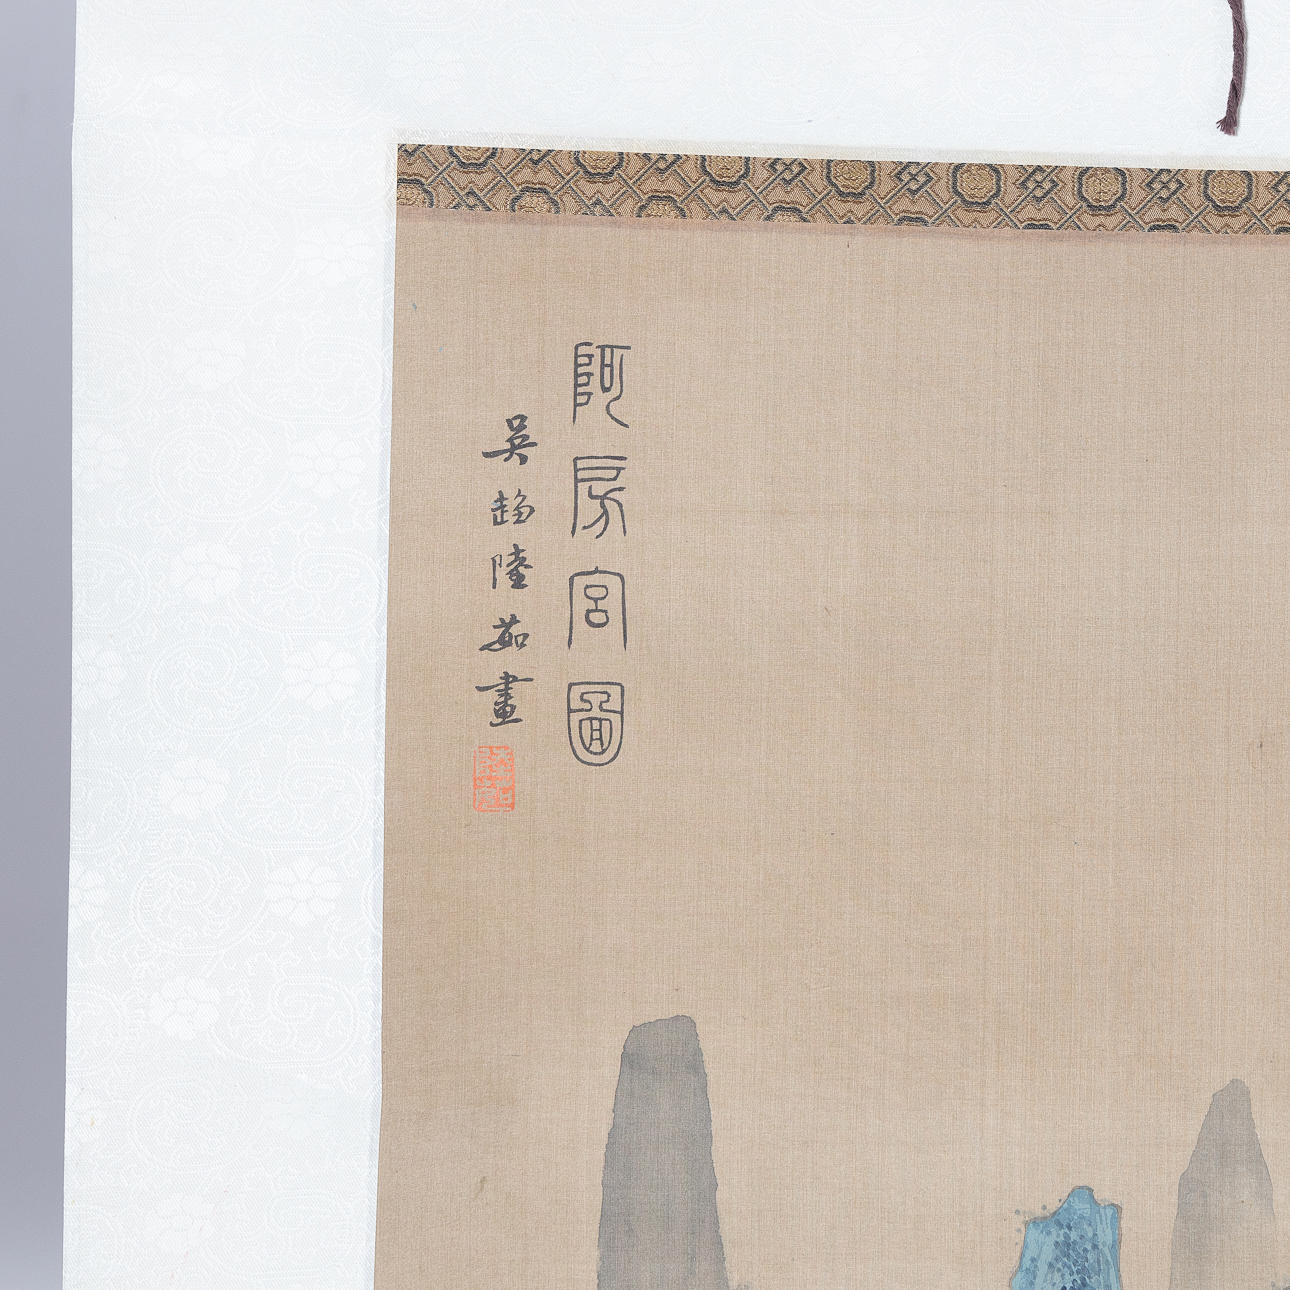 阿房宮圖
吳趨陸茹畫